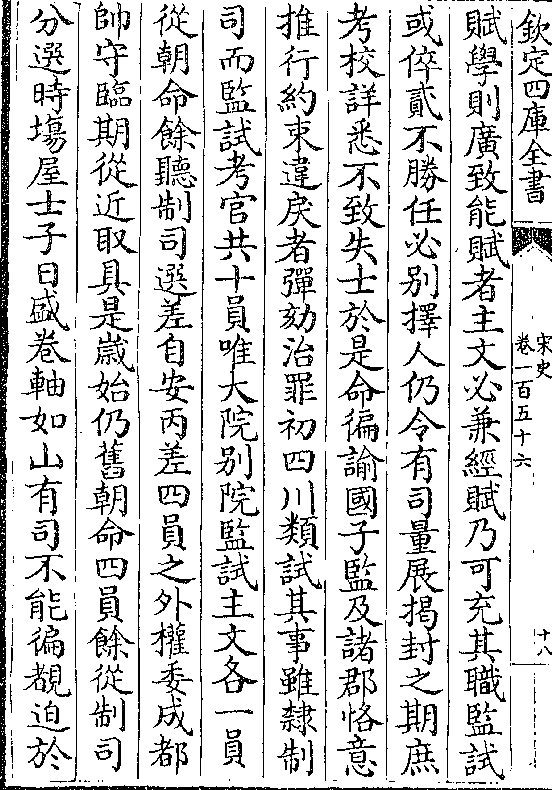 欽定四庫全書
宋史
卷一百五十六
十八
賦學則廣致能賦者主文必兼經賦乃可充其職監試
或倅貳不勝任必别擇人仍令有司量展揭封之期庶
考校詳悉不致失士於是命徧諭國子監及諸郡恪意
推行約束違戾者彈劾治罪初四川類試其事雖隸制
司而監試考官共十員唯大院别院監試主文各一員
從朝命餘聽制司選差自安丙差四員之外權委成都
帥守臨期從近取具是嵗始仍舊朝命四員餘從制司
分選時場屋士子日盛卷軸如山有司不能徧覩迫於